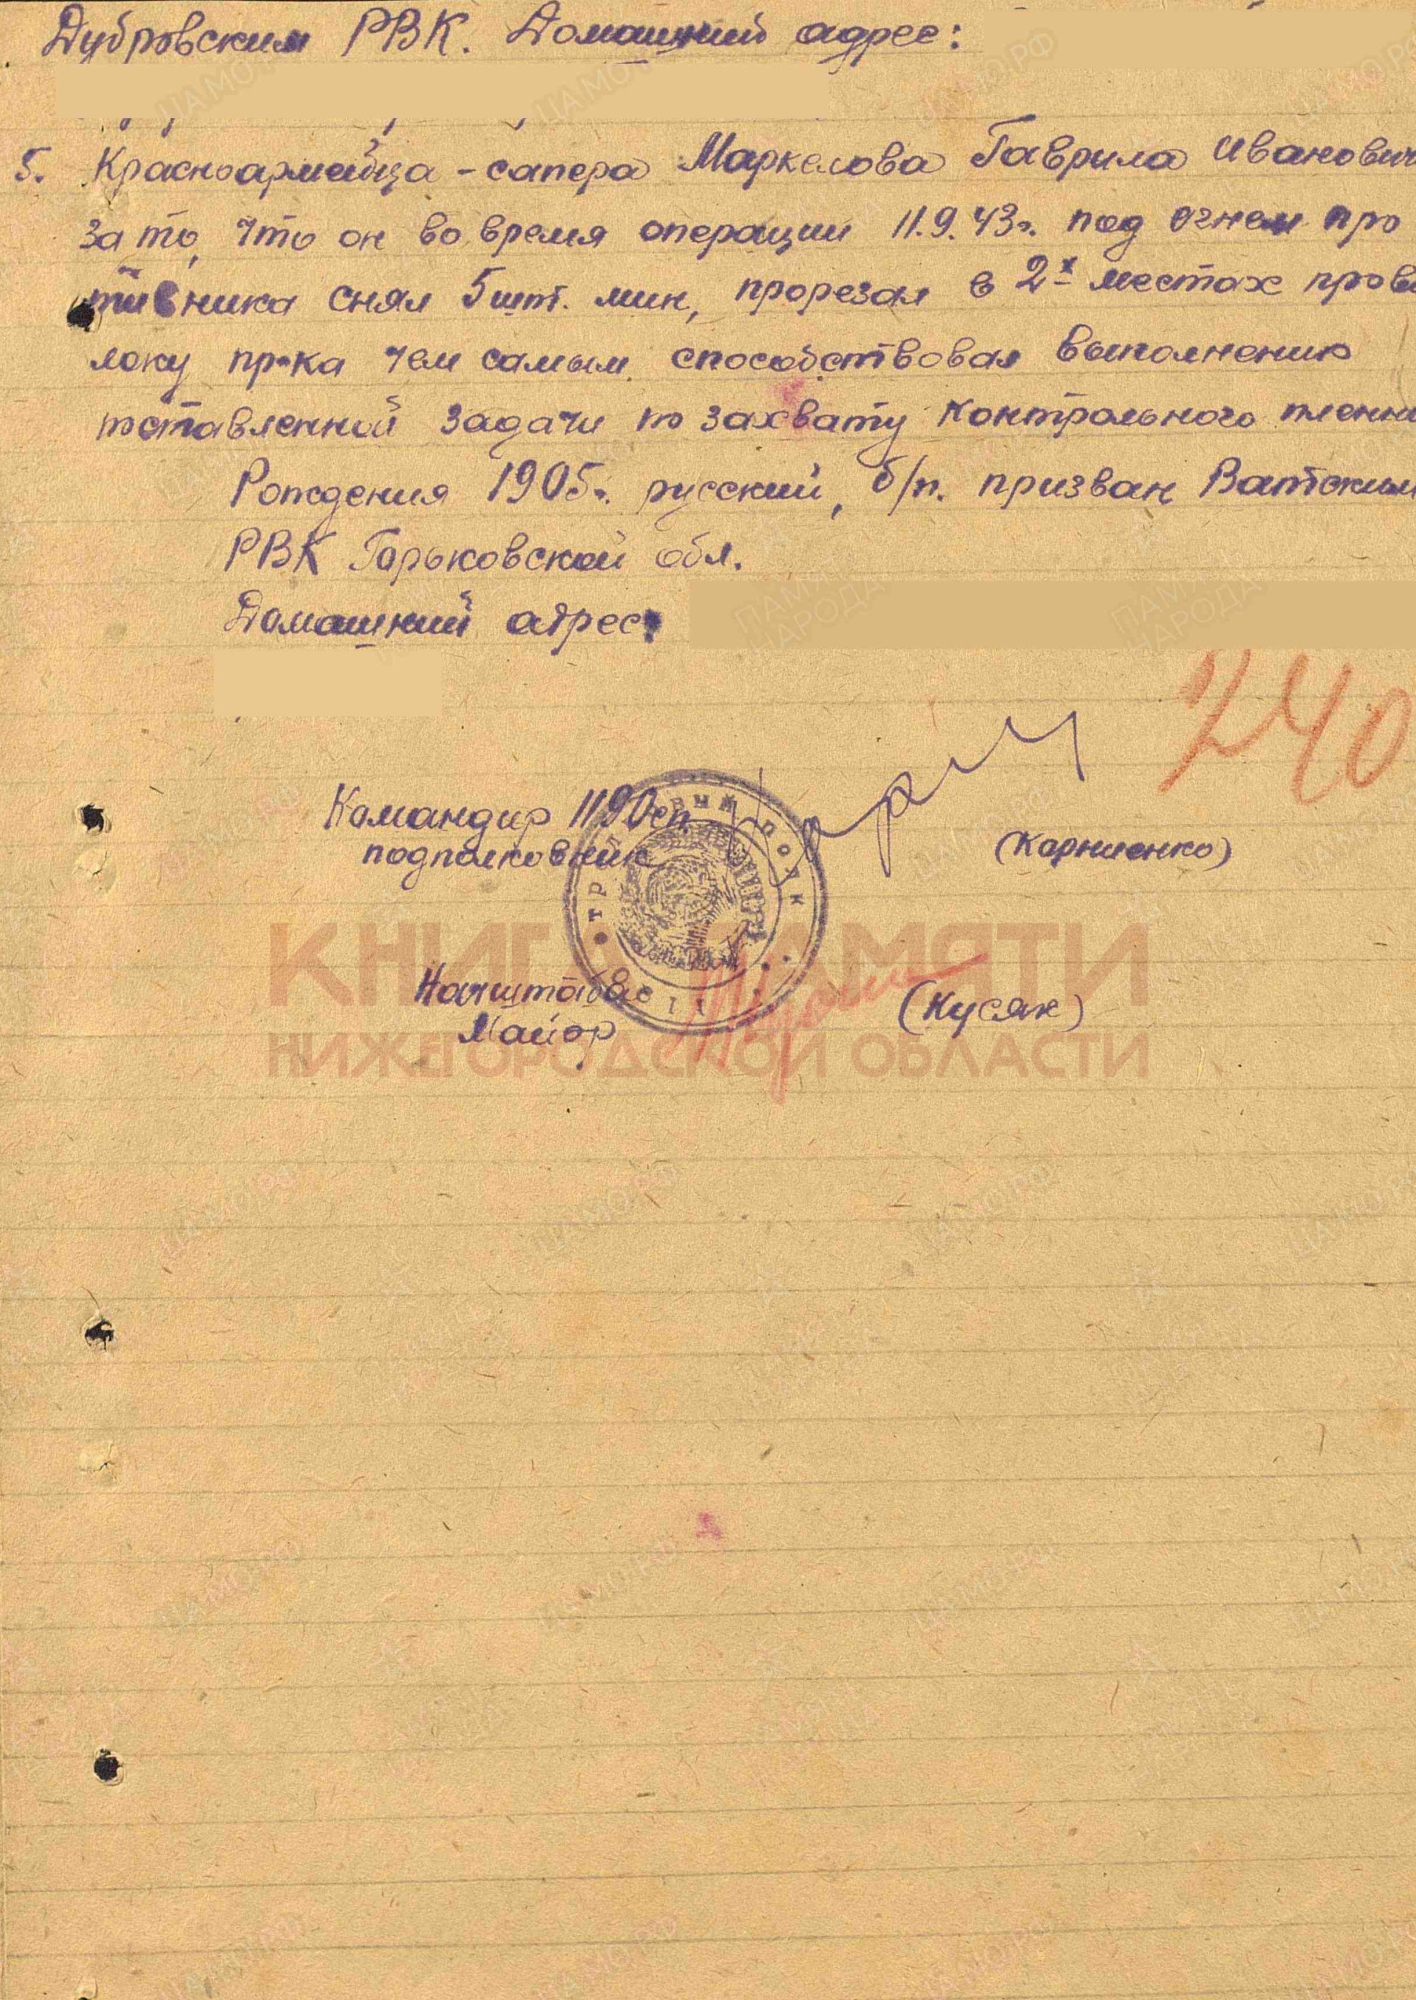 Дубровским РВК. Домашний адрес:
5. Красноармейца - сапера Маркелова Гаврила Иванович
за то, что он во время операции 11.9.43г. под огнем про
тивника снял 5 шт. мин, прорезал в 2-х местах прово
локу пр-ка чем самым способствовал выполнению
поставленной задачи по захвату контрольного пленн
Рождения 1905г. русский, б/п. призван Ватским
РВК Горьковской обл.
Домашний адрес:
240
Командир 1190 сп
подполковник
(Корниенко)
КНИГА ПАМЯТИ
Начштаба
Майор
(Кусяк)
НИЖЕГОРОДСКОЙ ОБЛАСТИ